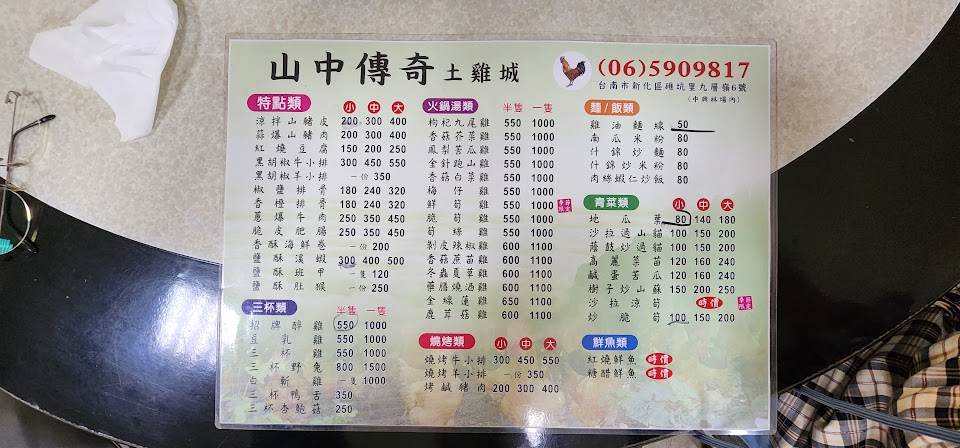 山中傳奇土雞城
(06)5909817
台南市新化區礁坑里九層嶺6號
(中興林場內)
特點類 小 中 大
涼拌山豬皮 200 300 400
蒜爆山豬肉 200 300 400
紅燒豆腐 150 200 250
黑胡椒牛小排 300 450 550
黑胡椒羊小排 一份 350
椒鹽排骨 180 240 320
香橙排骨 180 240 320
蔥爆牛肉 250 350 450
脆皮肥腸 250 350 450
香酥海鮮卷 一份 200
鹽酥溪蝦 300 400 500
鹽酥班甲 一隻 120
鹽酥肚猴 一份 250
三杯類 半隻 一隻
招牌醉雞 550 1000
豆乳雞 550 1000
三杯雞 550 1000
三杯野兔 800 1500
白斬雞 一隻 1000
三杯鴨舌 350
三杯杏鮑菇 250
火鍋湯類 半隻 一隻
枸杞九尾雞 550 1000
香菇芥菜雞 550 1000
鳳梨苦瓜雞 550 1000
金針跑山雞 550 1000
香菇白菜雞 550 1000
梅仔雞 550 1000
鮮筍雞 550 1000 季節限定
脆筍雞 550 1000
筍絲雞 550 1000
剝皮辣椒雞 600 1100
香菇蔗苗雞 600 1100
冬蟲夏草雞 600 1100
藥膳燒酒雞 600 1100
金線蓮雞 650 1100
鹿茸菇雞 600 1100
燒烤類 小 中 大
燒烤牛小排 300 450 550
燒烤羊小排 一份 350
烤鹹豬肉 200 300 400
麵/飯類
雞油麵線 50
南瓜米粉 80
什錦炒麵 80
什錦炒米粉 80
肉絲蝦仁炒飯 80
青菜類 小 中 大
地瓜葉 80 140 180
沙拉過山貓 100 150 200
蔭鼓炒過貓 100 150 200
高麗菜苗 120 160 240
鹹蛋苦瓜 120 160 240
樹子炒山蘇 150 200 250
沙拉涼筍 時價 季節限定
炒脆筍 100 150 200
鮮魚類
紅燒鮮魚 時價
糖醋鮮魚 時價